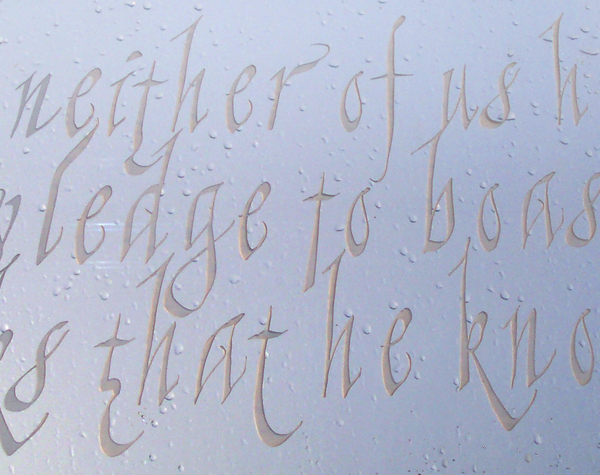 neither of us h
ledge to boas
ks that he kno